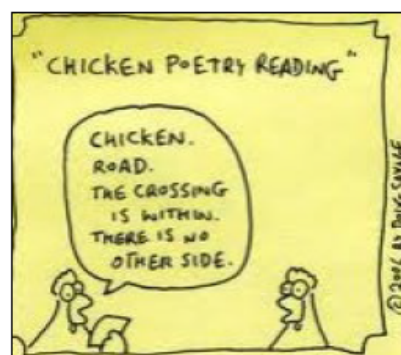 "CHICKEN POETRY READING"
CHICKEN.
ROAD.
THE CROSSING
IS WITHIN.
THERE IS NO
OTHER SIDE.
©2006 BY DOUG SAVAGE